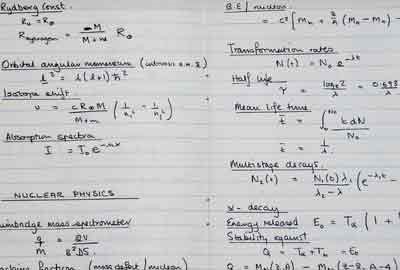 Rydberg Const.
R₀ = R∞
R_Hydrogen = M / (M + m) R∞
Orbital angular momentum
l² = l(l+1) ħ²
Isotope shift
υ = c R∞ M / (M + m) ( 1/n₁² − 1/n₂² )
Absorption spectra
I = I₀ e^-
NUCLEAR PHYSICS
mass spectrometer
q/m = 2V / B²DS
fraction (mass defect / nucleon)
B.E / nucleon
= c² [ Mₙ + Z/A (M_H − Mₙ) −
Transformation rates
N(t) = N₀ e^-λt
Half life
τ = logₑ2 / λ = 0.693 / λ
Mean life time
t̄ = ∫₀^N₀ t dN / N₀
t̄ = 1/λ
Multistage decays
N₂(t) = N₁(0) λ₁ / (λ₂ − λ) ( e^-λ₁t −
α - decay
Energy released E₀ = Tα ( 1 +
Stability against
Q = Tα + T = E₀
Q = M (Z, A) − M (Z-2, A-4)